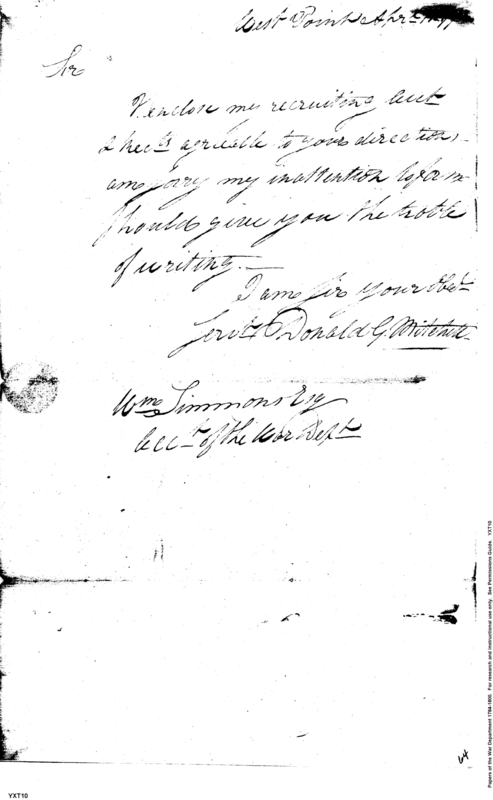 West Point Apr
Sir
I enclose my recruiting Acct
& recpts agreeable to your direction,
am sorry my inattention to form
should give you the troble
of writing.—
I am Sir your Obt
Servt Donald G Mitchell
Wm Simmons Esq
Acct of the War Dept
64
YXT10
Papers of the War Department 1784-1800. For research and instructional use only. See Permissions Guide. YXT10